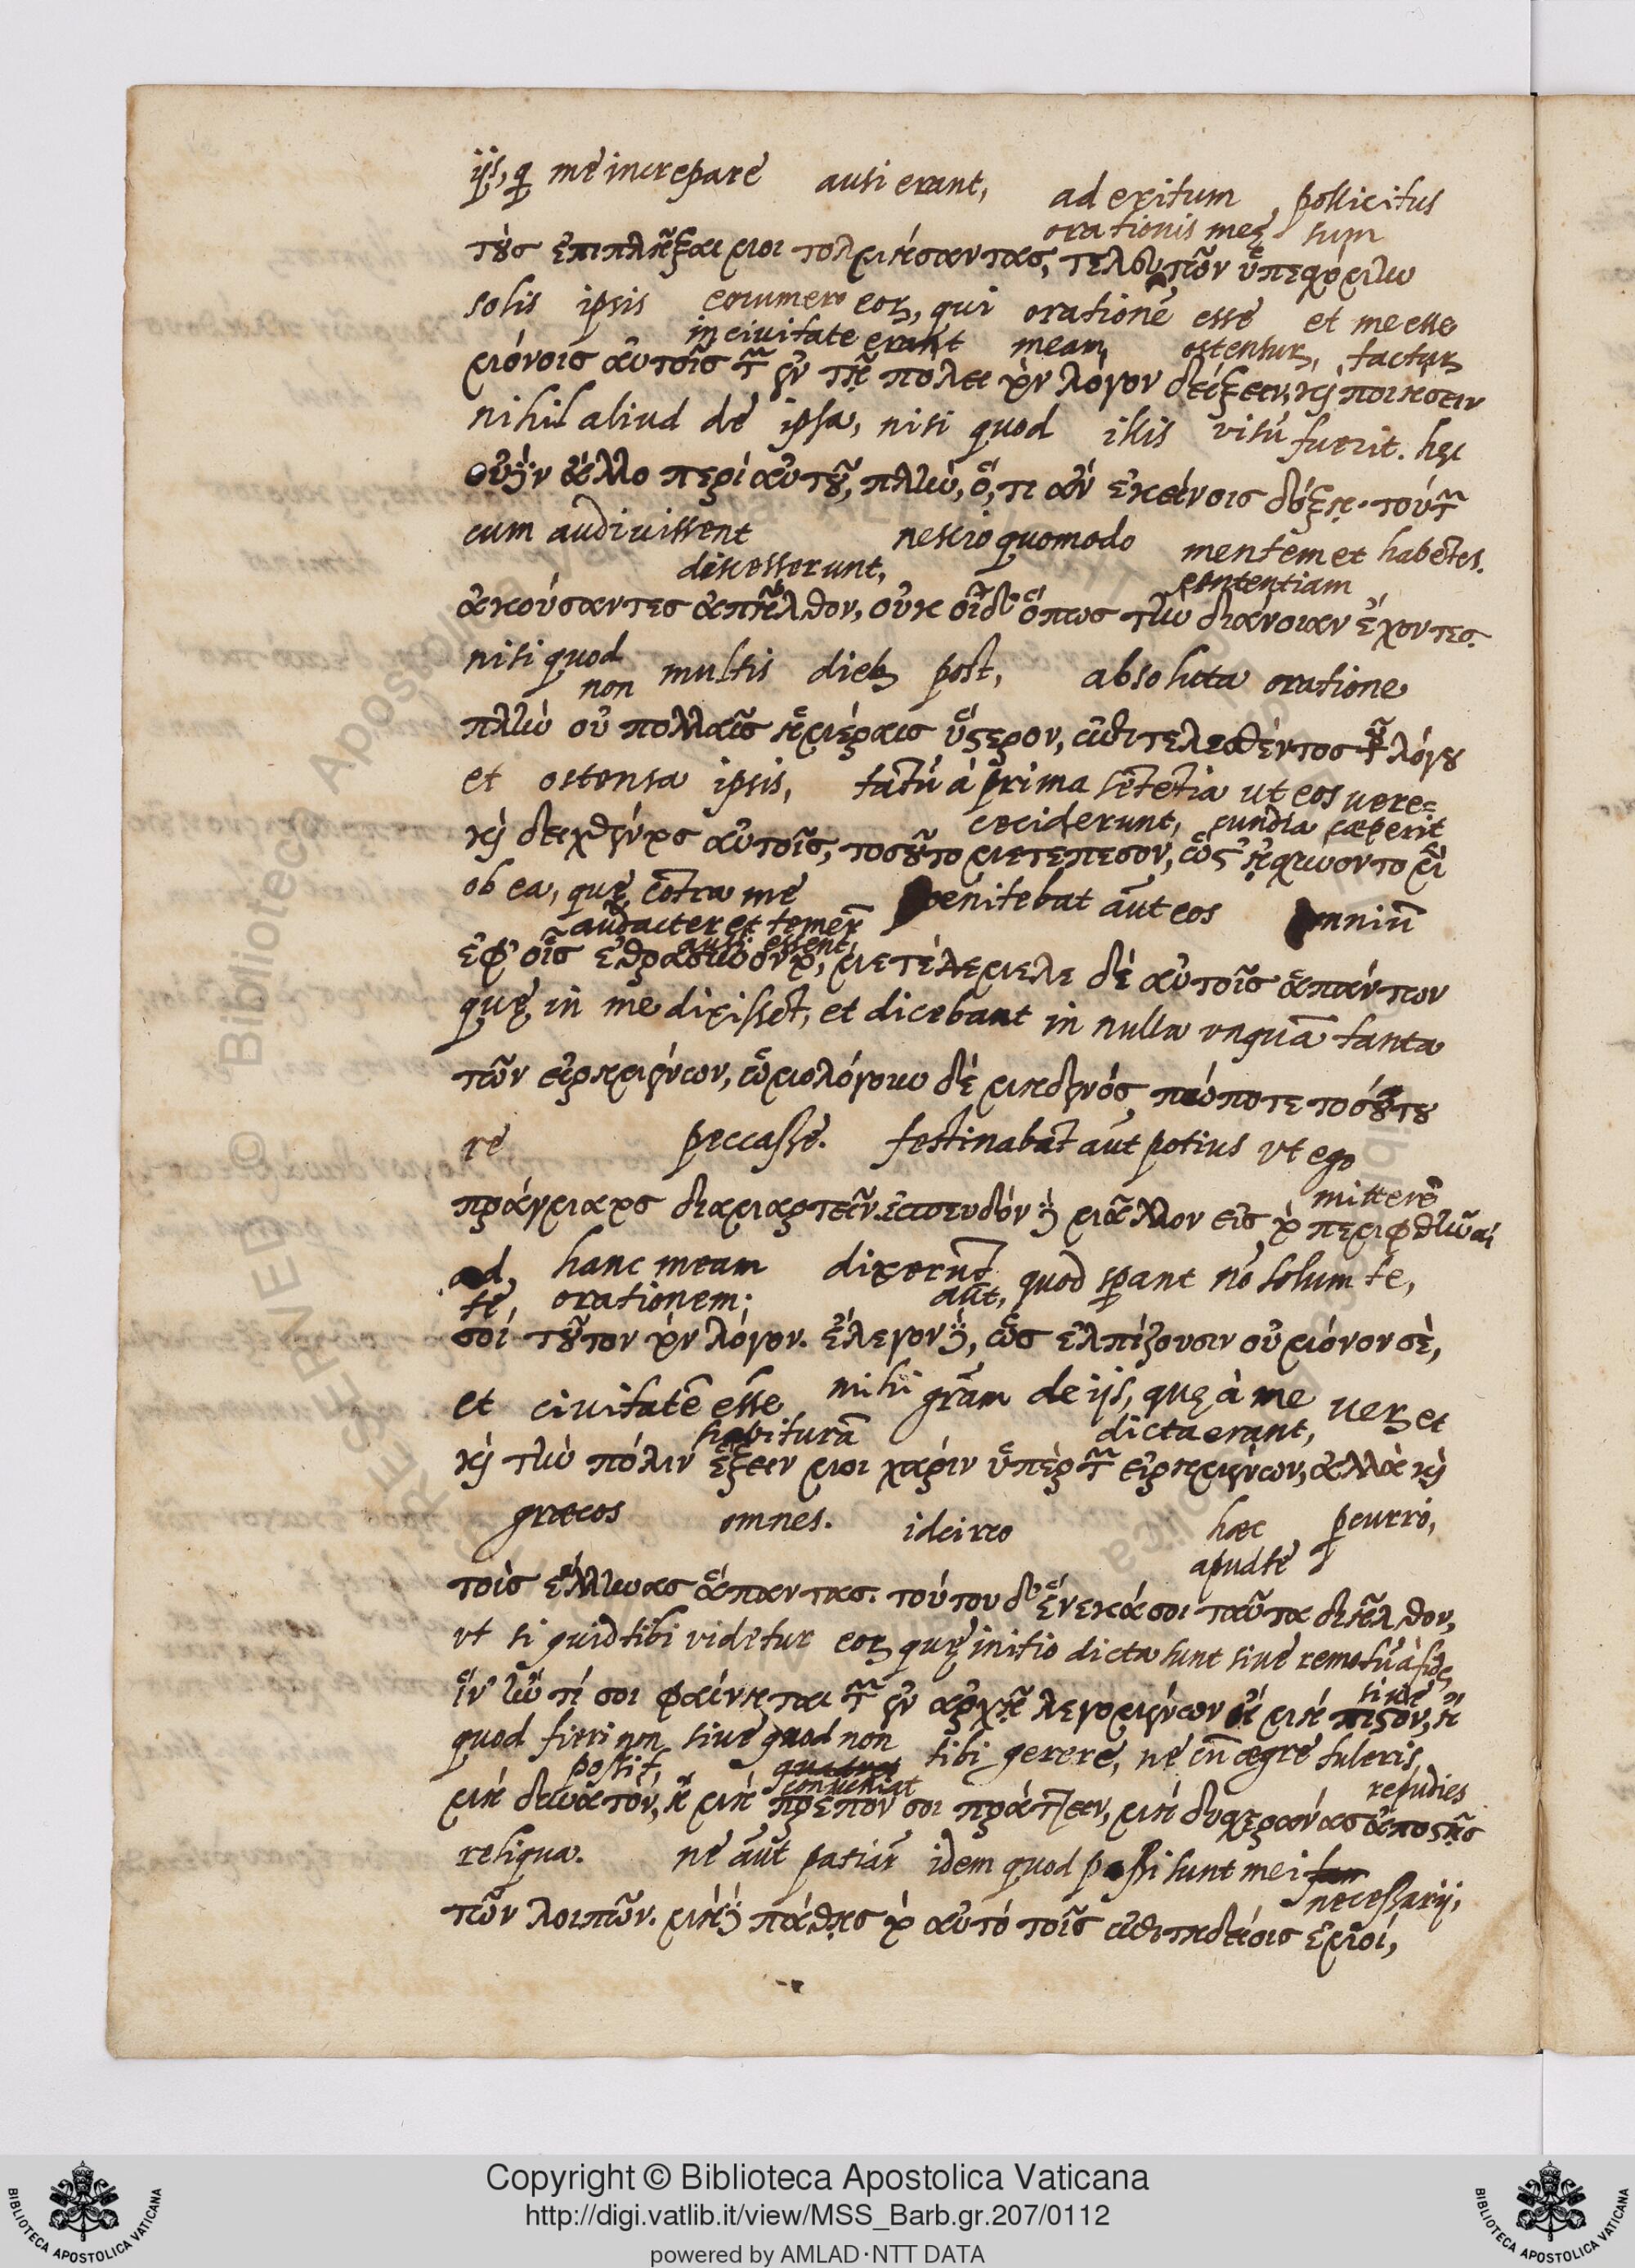 ijs, q me increpare ausi erant, ad exitum pollicitus
orationis meę sum
τοὺς ἐπιπλῆξαι μοι τολμήσαντας, τελευτῶν ὑπεσχόμην
solis ipsis eorum eoꝝ, qui orationē esse et me esse
in civitate erant meam, ostensuꝝ, factuꝝ
μόνοις αὐτοῖς τῶν ἐν τῇ πόλει τὸν λόγον δείξειν, καὶ ποιήσειν
nihil aliud de ipsa, nisi quod illis visū fuerit. hęc
οὐδὲν ἄλλο περὶ αὐτοῦ, πλὴν, ὅ, τι ἂν ἐκείνοις δόξῃ. τούτων
cum audivissent nescio quomodo mentem et habētes.
discesserunt, sententiam
ἀκούσαντες ἀπῆλθον, οὐκ οἶδ' ὅπως τὴν διάνοιαν ἔχοντες.
nisi quod multis dieb post, absoluta oratione
non
πλὴν οὐ πολλαῖς ἡμέραις ὕστερον, ἐπιτελεσθέντος τοῦ λόγου
et ostensa ipsis, tātū à prima sētētia ut eos vere=
ceciderunt, cundia cæperit
καὶ δειχθέντος αὐτοῖς, τοσοῦτο μετέπεσον, ὥστ' ᾐσχύνοντο μὲν
ob ea, quę cōtra me penitebat aūt eos omniū
audacter et temerē
ausi essent,
ἐφ' οἷς ἐθρασύνοντο, μετέμελε δὲ αὐτοῖς ἁπάντων
quę in me dixissēt, et dicebant in nulla unquā tanta
τῶν εἰρημένων, ὡμολόγουν δὲ μηδενός, πώποτε τοσούτου
re peccasse. festinabāt aūt potius ut ego
mitterē
πράγματος διαμαρτεῖν. ἔσπευδον δὲ μᾶλλον εἰς τὸ πεμφθῆναί
ad, hanc meam dixerūt quod sperant nō solum te,
te, orationem; aūt,
σοί τοῦτον τὸν λόγον. ἔλεγον δὲ, ὡς ἐλπίζουσιν οὐ μόνον σὲ,
et civitatē esse mihi grām de ijs, quę à me veꝝ et
habiturā dicta erant,
καὶ τὴν πόλιν ἕξειν μοι χάριν ὑπὲρ τῶν εἰρημένων, ἀλλὰ καὶ
græcos omnes. idcirco hæc pcurri,
apud te
τοὺς ἕλληνας ἅπαντας. τούτου δ' ἕνεκά σοι ταῦτα διῆλθον,
ut si quid tibi videtur eoꝝ quę initio dicta sunt sive remotū à fide,
sive
ἵν' ἤν τί σοι φαίνηται τῶν ἐν ἀρχῇ λεγομένων ἢ μὴ πιστὸν, ἢ
quod fieri non sive quod non tibi gerere, ne eū ægre tuleris,
possit, conveniat repudies
μὴ δυνατὸν, ἢ μὴ πρέπον σοι πράττειν, μὴ δυσχεράνας ἀποστῇς
reliqua. ne aūt patiar idem quod passi sunt mei
necessarij,
τῶν λοιπῶν. μὴ δὲ πάθῃς τὸ αὐτὸ τοῖς ἐπιτηδείοις ἐμοί,
Copyright © Biblioteca Apostolica Vaticana
http://digi.vatlib.it/view/MSS_Barb.gr.207/0112
powered by AMLAD·NTT DATA
BIBLIOTECA APOSTOLICA VATICANA
BIBLIOTECA APOSTOLICA VATICANA